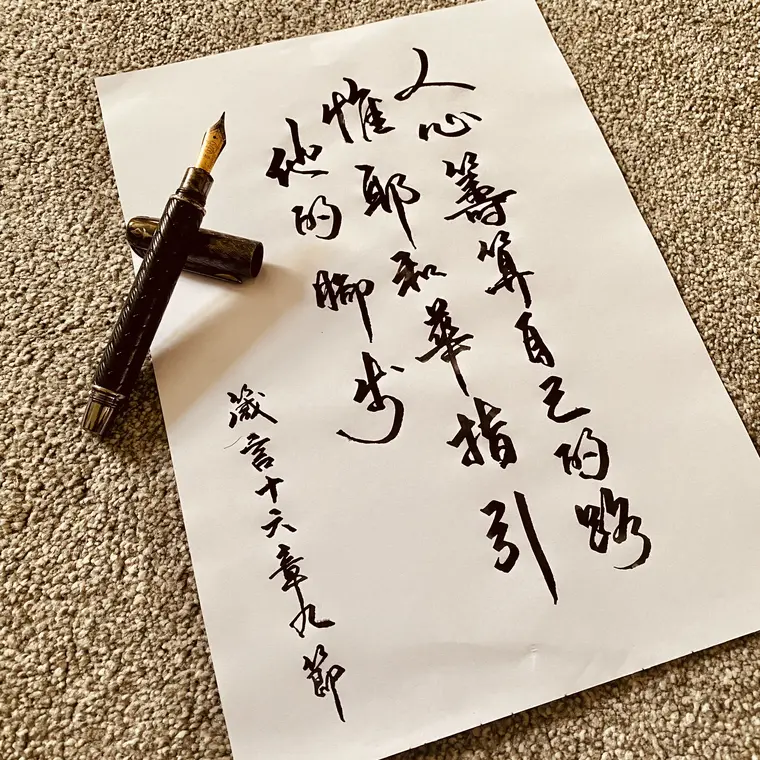 人心籌算自己的路
惟耶和華指引
他的腳步
箴言十六章九節